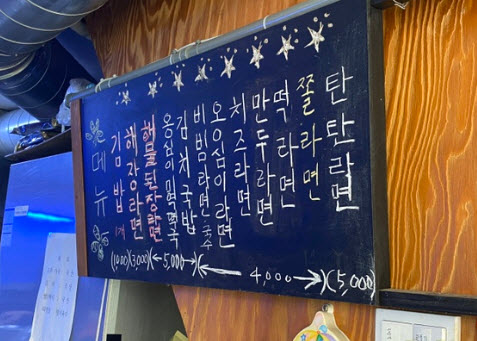 메뉴
김밥
해장라면
해물된장라면
옹심이미역국
김치국밥
비빔라면 국수
옹심이라면
치즈라면
만두라면
떡라면
쫄라면
탄탄라면
(1000)(3,000)(←5,000→)(← 4,000 →)(5,000)